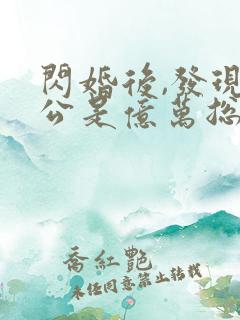 閃婚後,發現
公是億萬総
喬紅艷
未经同意禁止转载